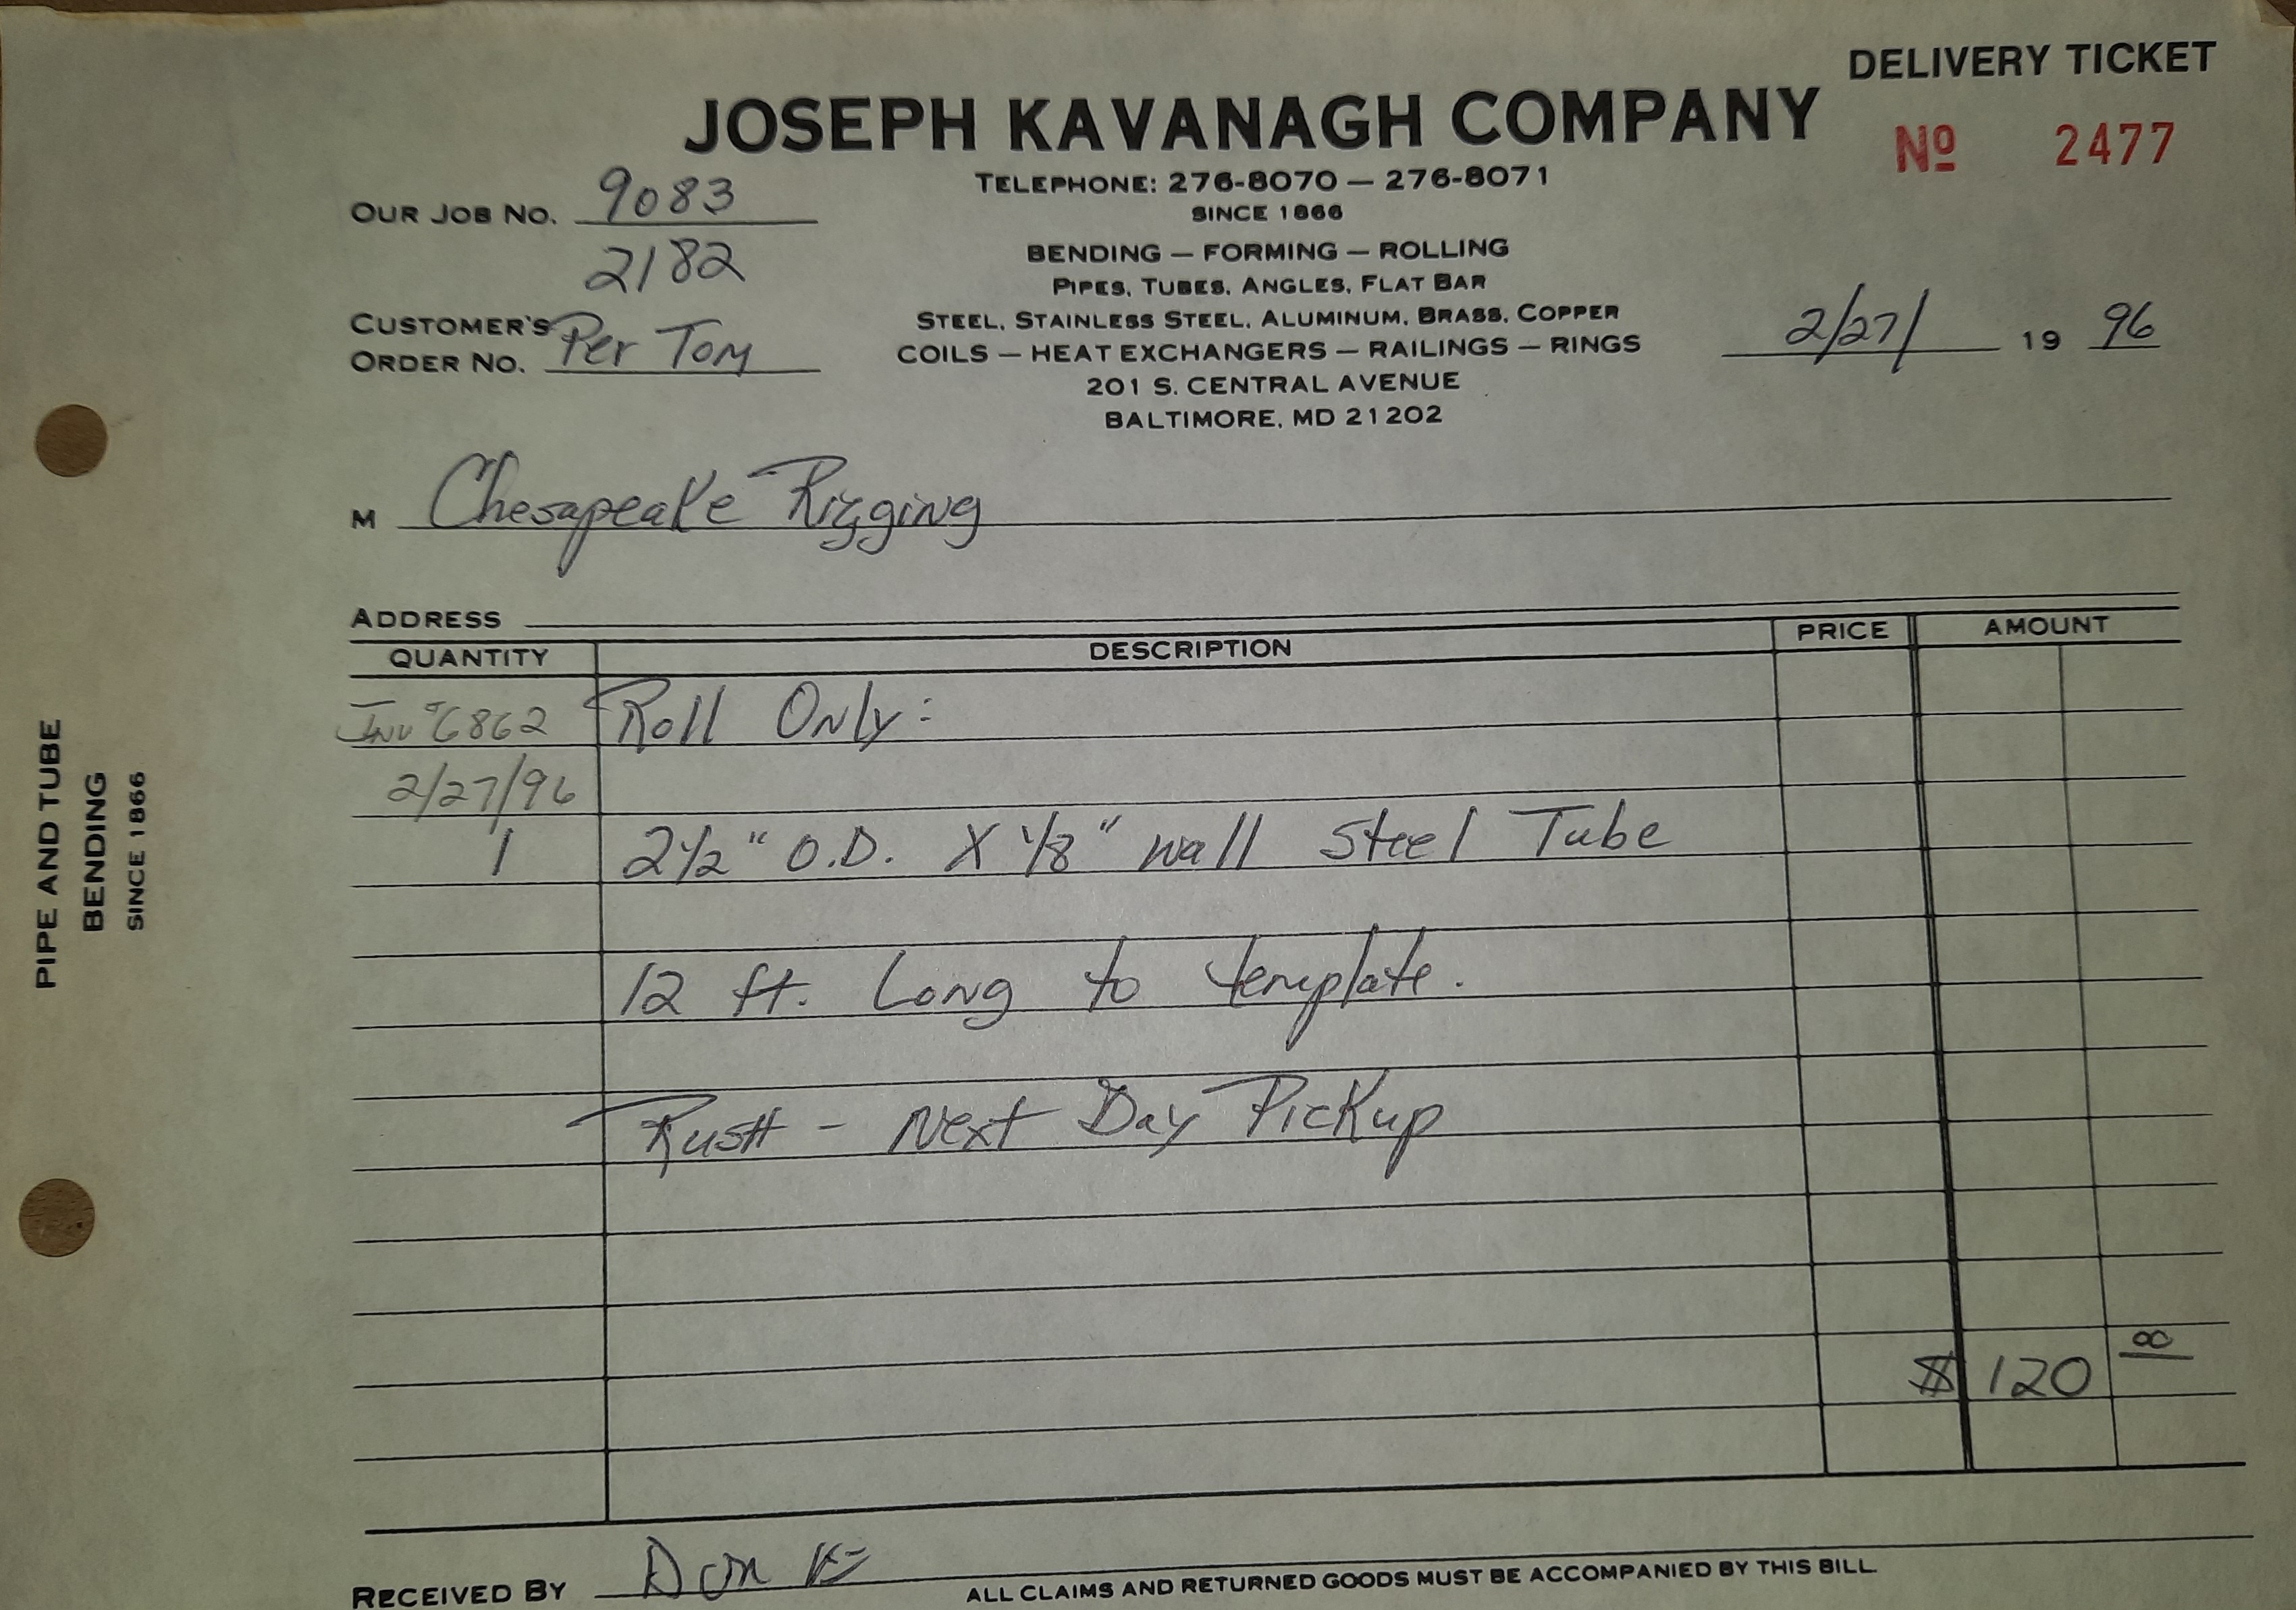 DELIVERY TICKET
JOSEPH KAVANAGH COMPANY
Nº 2477
TELEPHONE: 276-8070 — 276-8071
SINCE 1866
OUR JOB NO. 9083
2182
BENDING — FORMING — ROLLING
PIPES, TUBES, ANGLES, FLAT BAR
STEEL, STAINLESS STEEL, ALUMINUM, BRASS, COPPER
COILS — HEAT EXCHANGERS — RAILINGS — RINGS
201 S. CENTRAL AVENUE
BALTIMORE, MD 21202
CUSTOMER'S
ORDER NO. Per Tom
2/27/ 19 96
M Chesapeake Rigging
ADDRESS
QUANTITY DESCRIPTION PRICE AMOUNT
Inv # 6862 Roll Only:
2/27/96
1 2 1/2" O.D. X 1/8" wall Steel Tube
12 ft. Long to template.
Rush - Next Day Pickup
$ 120 00
RECEIVED BY Don
ALL CLAIMS AND RETURNED GOODS MUST BE ACCOMPANIED BY THIS BILL
PIPE AND TUBE
BENDING
SINCE 1866